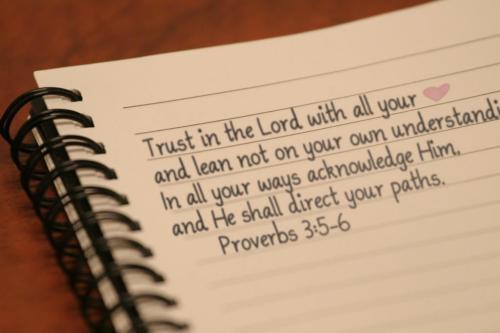 Trust in the Lord with all your ♥
and lean not on your own understandi
In all your ways acknowledge Him,
and He shall direct your paths.
Proverbs 3:5-6